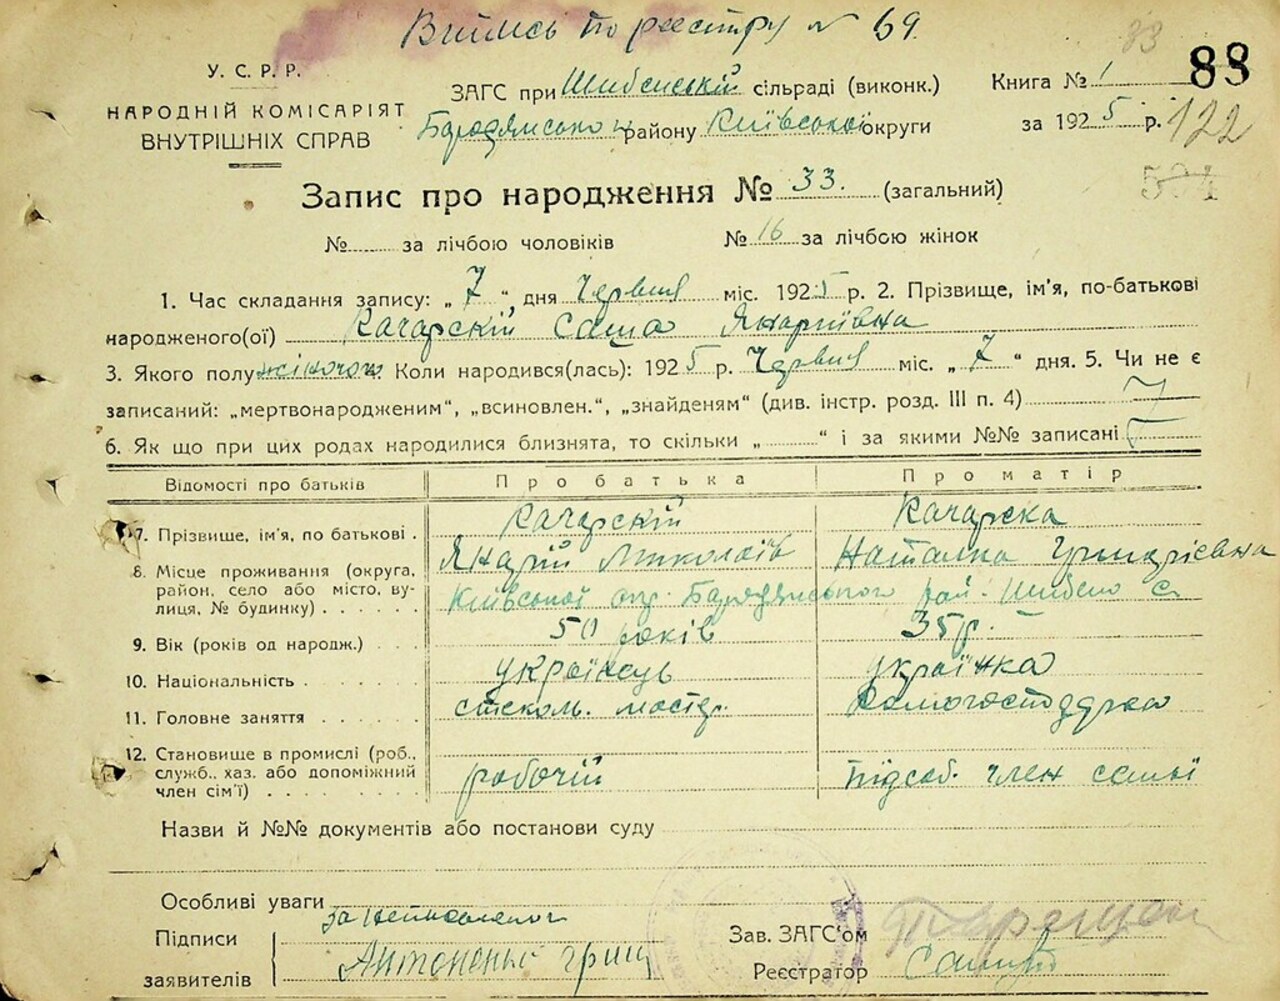 Витись по реєстру № 69.
83
88
У. С. Р. Р.
НАРОДНІЙ КОМІСАРІЯТ
ВНУТРІШНІХ СПРАВ
ЗАГС при Шибенській сільраді (виконк.)
Бородянсько району Київської округи
Книга № 1
за 1925 р.
122
504
Запис про народження № 33. (загальний)
№ за лічбою чоловіків № 16 за лічбою жінок
1. Час складання запису: „7“ дня Червня міс. 1925 р. 2. Прізвище, ім'я, по-батькові
народженого(ої) Качарскій Саша
3. Якого полу жіночого. Коли народився(лась): 1925 р. Червня міс. „7“ дня. 5. Чи не є
записаний: „мертвонародженим“, „всиновлен.“, „знайденям“ (див. інстр. розд. III п. 4)
6. Як що при цих родах народилися близнята, то скільки „ “ і за якими №№ записані
Відомості про батьків Про батька Про матір
7. Прізвище, ім'я, по батькові . Качарскій Качарска
Миколаїв Наталка
8. Місце проживання (округа, район, село або місто, вулиця, № будинку) Київської окр. Бородянського рай. Шибено с.
9. Вік (років од народж.) 50 років 35 р.
10. Національність українець українка
11. Головне заняття стеколь. мастер.
12. Становище в промислі (роб., служб., хаз. або допоміжний член сім'ї) робочій підсоб. член семьї
Назви й №№ документів або постанови суду
Особливі уваги
Підписи
заявителів
Антоненко Гриц
Зав. ЗАГС'ом
Реєстратор